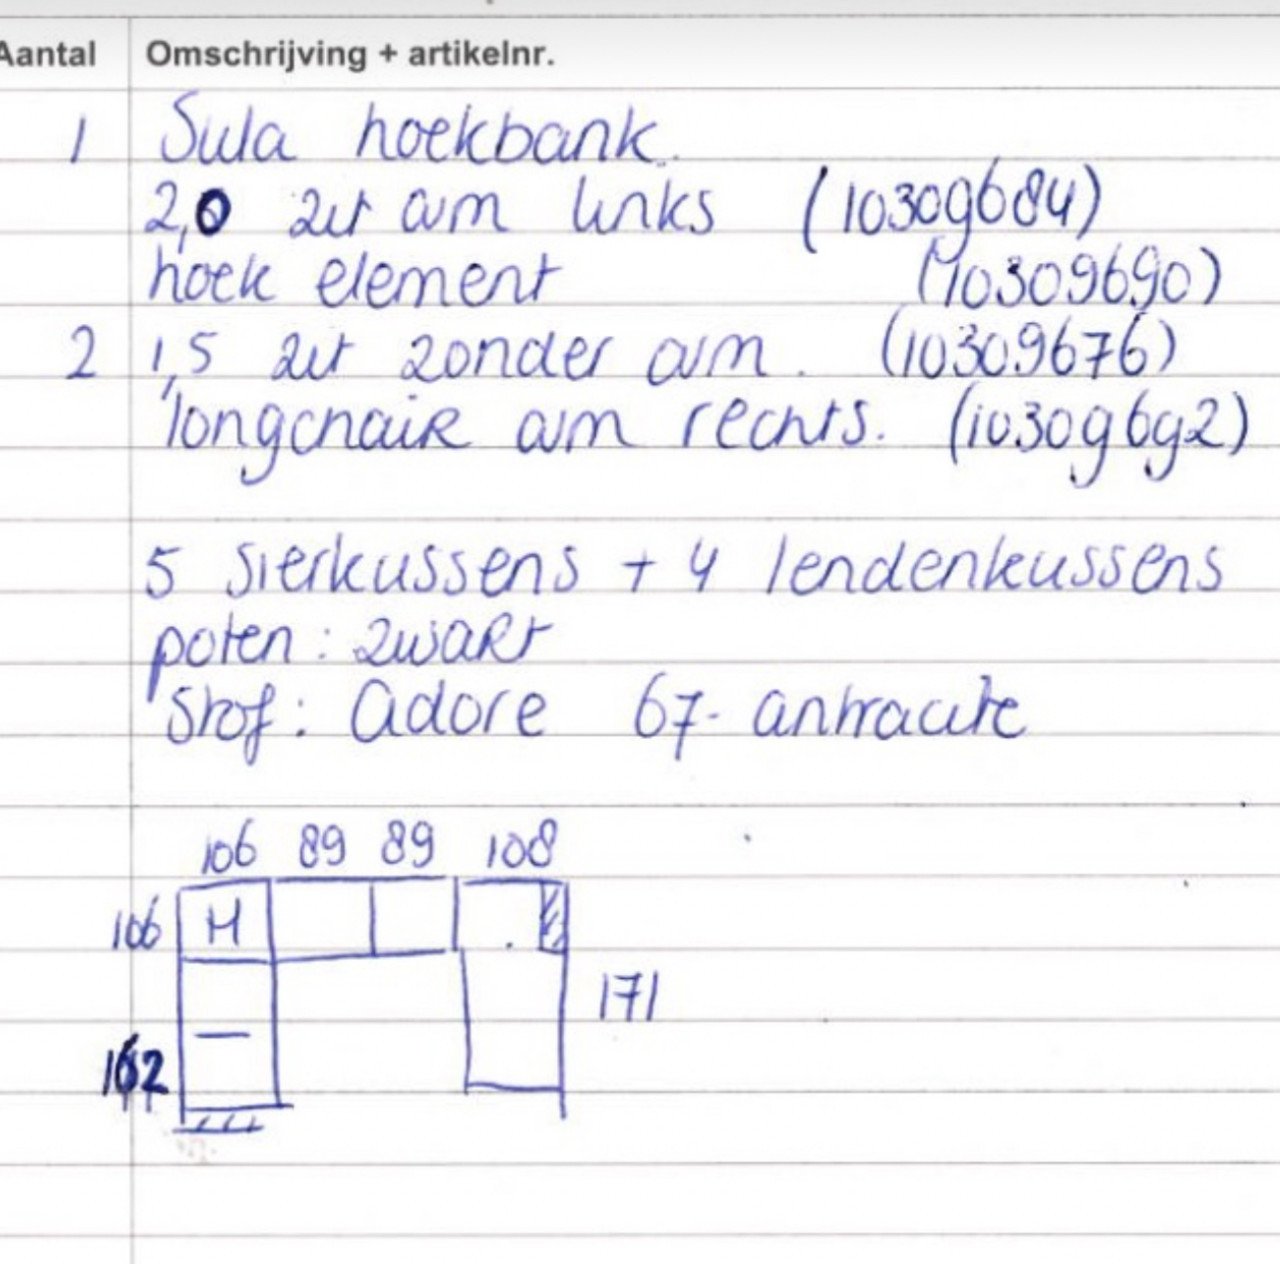 Aantal Omschrijving + artikelnr.
1 Sula hoekbank.
2,0 zit arm links (10309684)
hoek element (10309690)
2 1,5 zit zonder arm. (10309676)
longchair arm rechts. (10309692)
5 sierkussens + 4 lendenkussens
poten: zwart
Stof: Adore 67- antracite
106 89 89 108
106 H
171
162